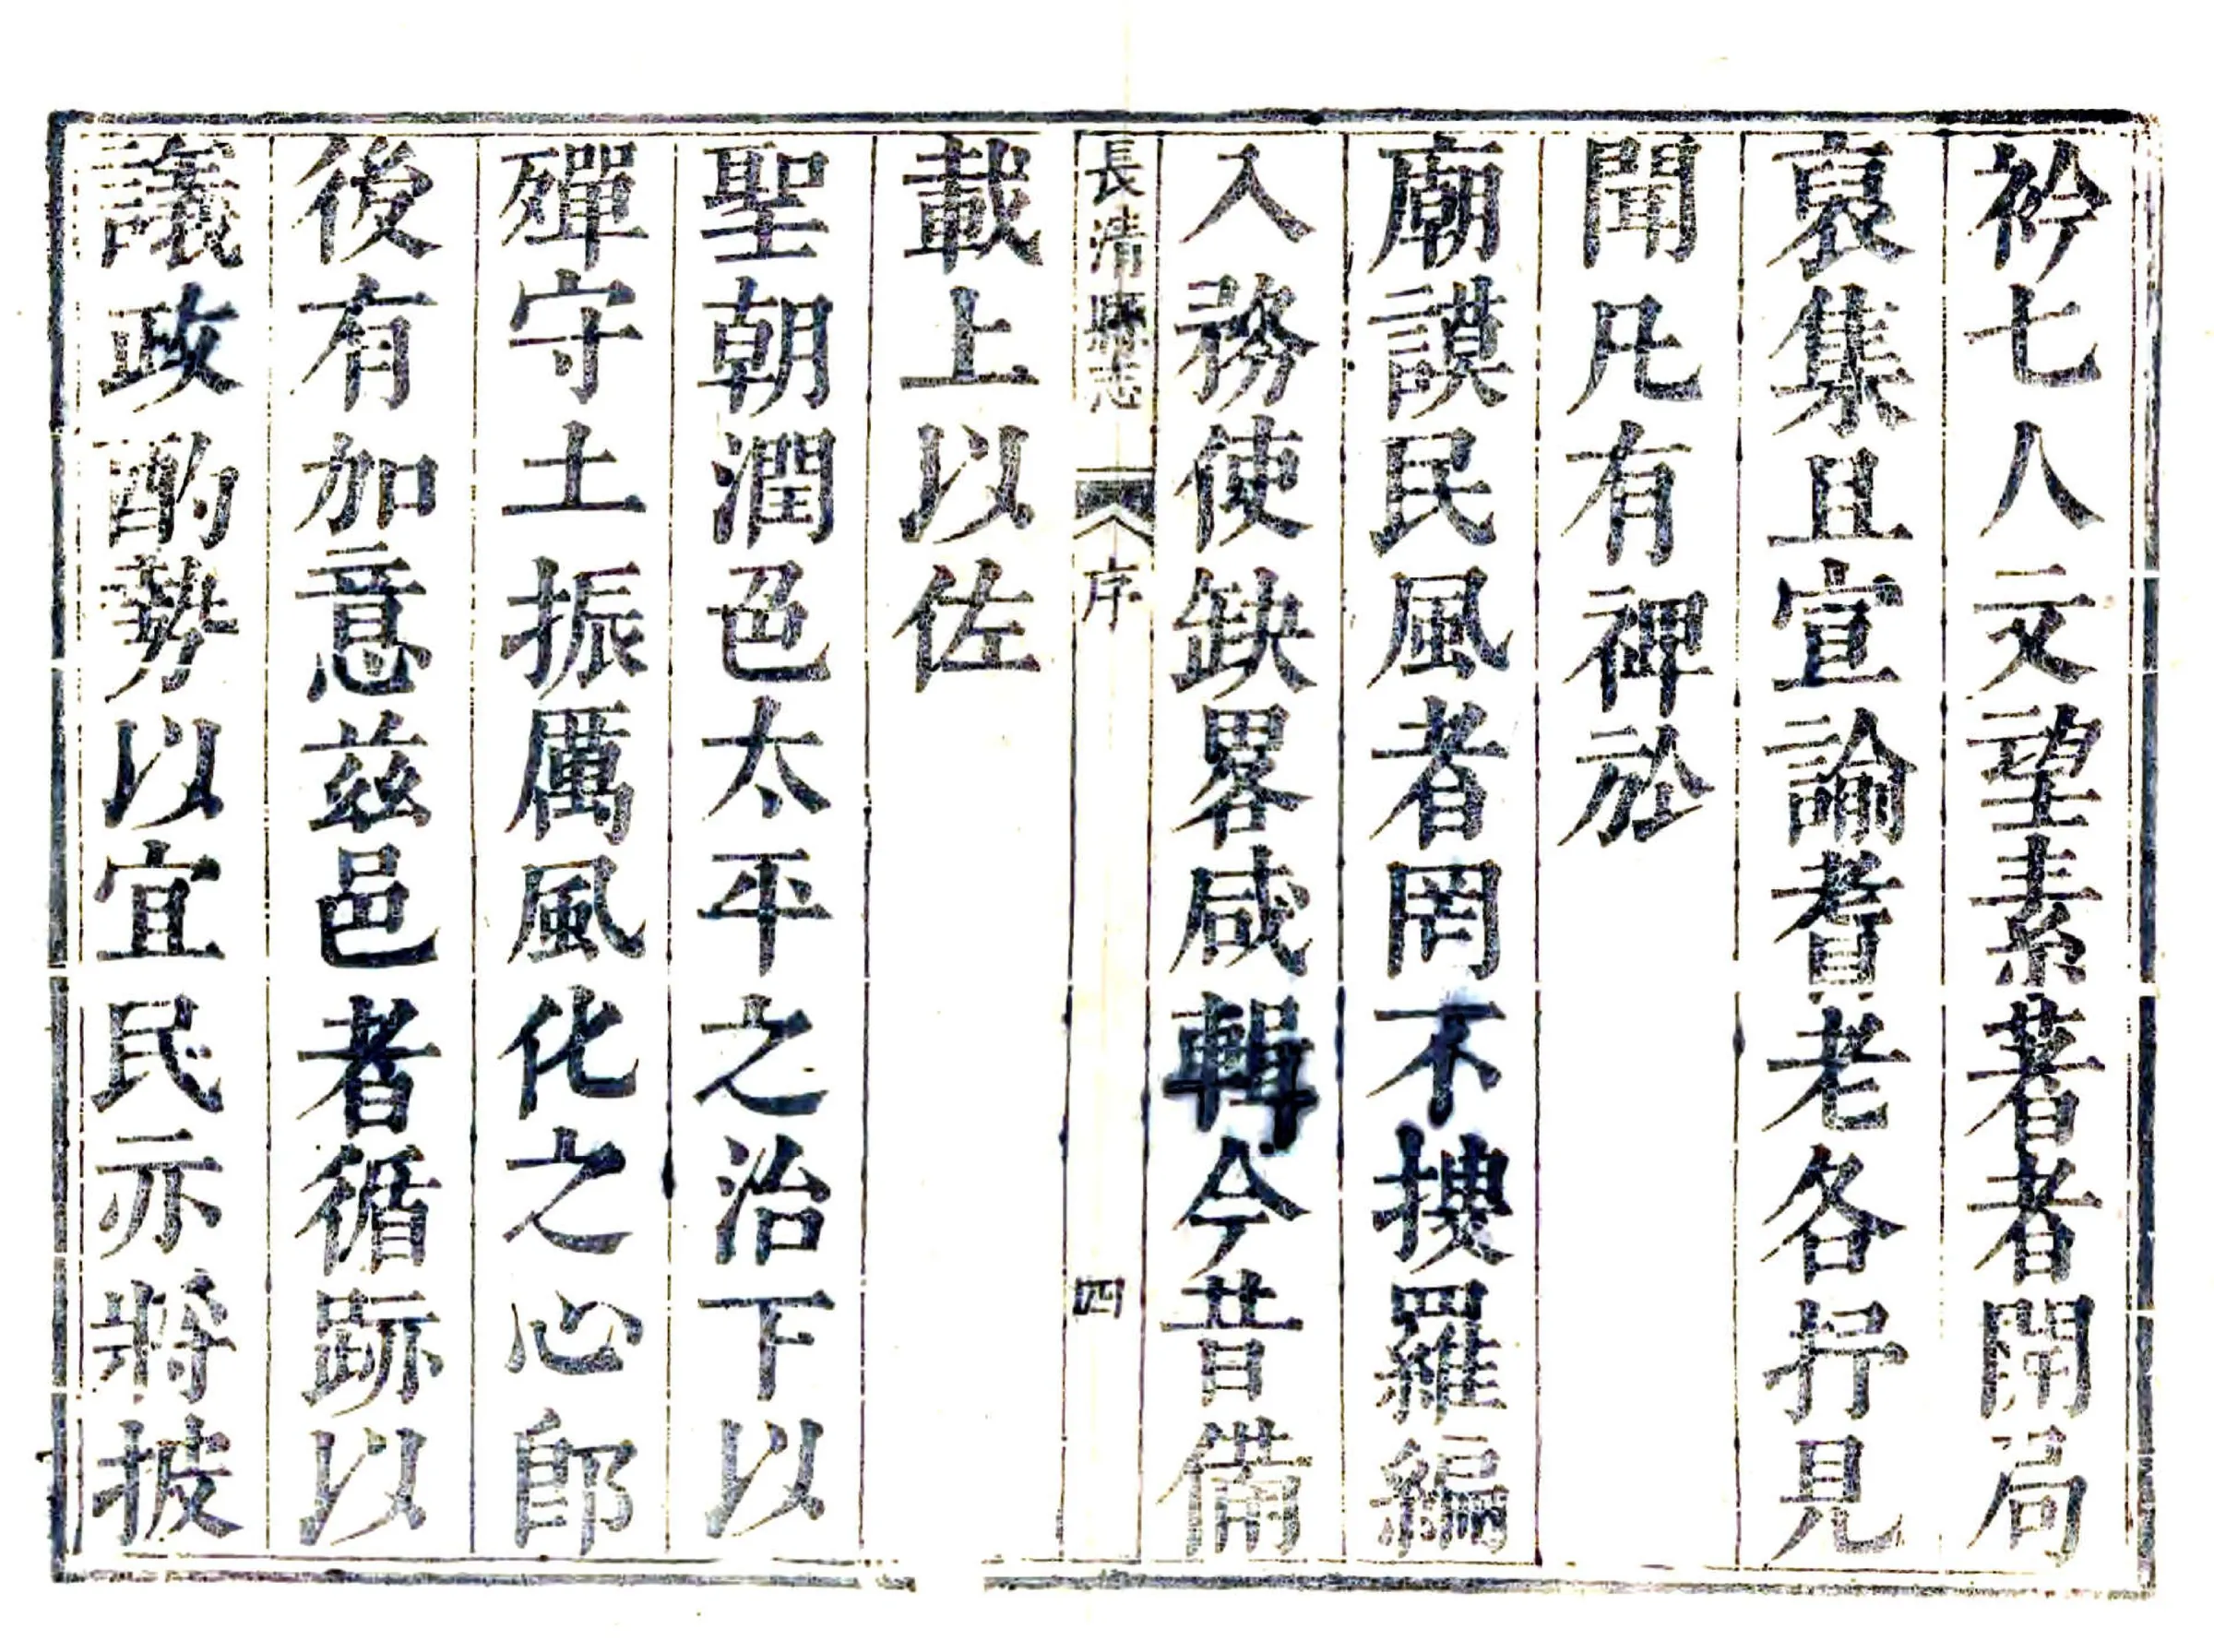 衿七人文望素著者開局
裒集且宣諭耆老各抒見
聞凡有裨於
廟謨民風者罔不搜羅編
入務使缺畧咸輯今昔備
長清縣志 序 四
載上以佐
聖朝潤色太平之治下以
殫守土振厲風化之心卽
後有加意茲邑者循跡以
議政酌勢以宜民亦將披